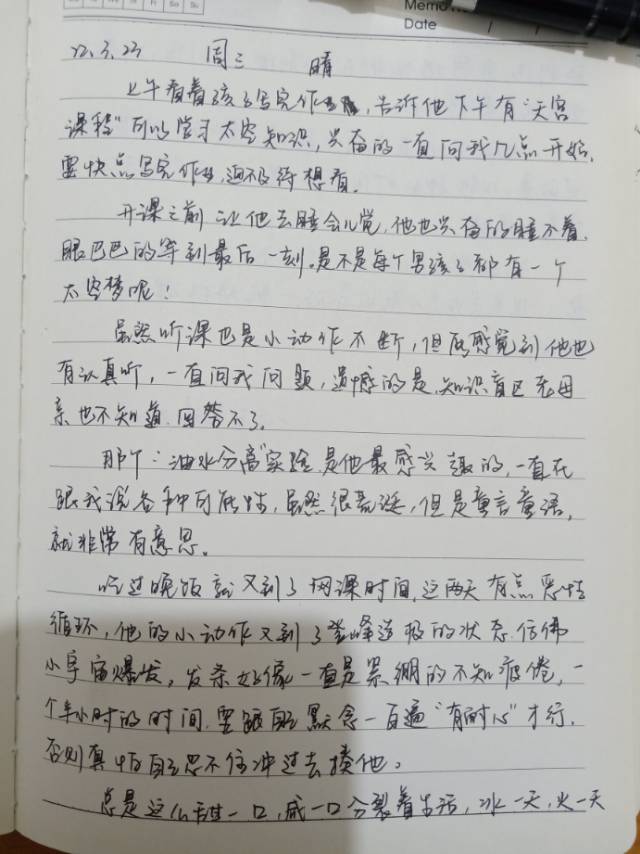 Memo
Date
22.3.23 周三 晴
上午看着孩子写完作业，告诉他下午有“天宫
课程”可以学习太空知识，兴奋的一直问我几点开始，
要快点写完作业，迫不及待想看。
开课之前让他去睡会儿觉，他也兴奋的睡不着，
眼巴巴的等到最后一刻。是不是每个男孩子都有一个
太空梦呢！
虽然听课也是小动作不断，但能感觉到他也
有认真听，一直问我问题，遗憾的是，知识盲区老母
亲也不知道，回答不了。
那个：油水分离”实验是他最感兴趣的，一直在
跟我说各种可能性，虽然很荒诞，但是童言童语，
就非常有意思。
吃过晚饭就又到了网课时间，这两天有点恶性
循环，他的小动作又到了登峰造极的状态，仿佛
小宇宙爆发，发条好像一直是紧绷的不知疲倦，一
个半小时的时间，要跟自己默念一百遍“有耐心”才行，
否则真怕自己忍不住冲过去揍他。
总是这么甜一口，咸一口分裂着生活，冰一天，火一天